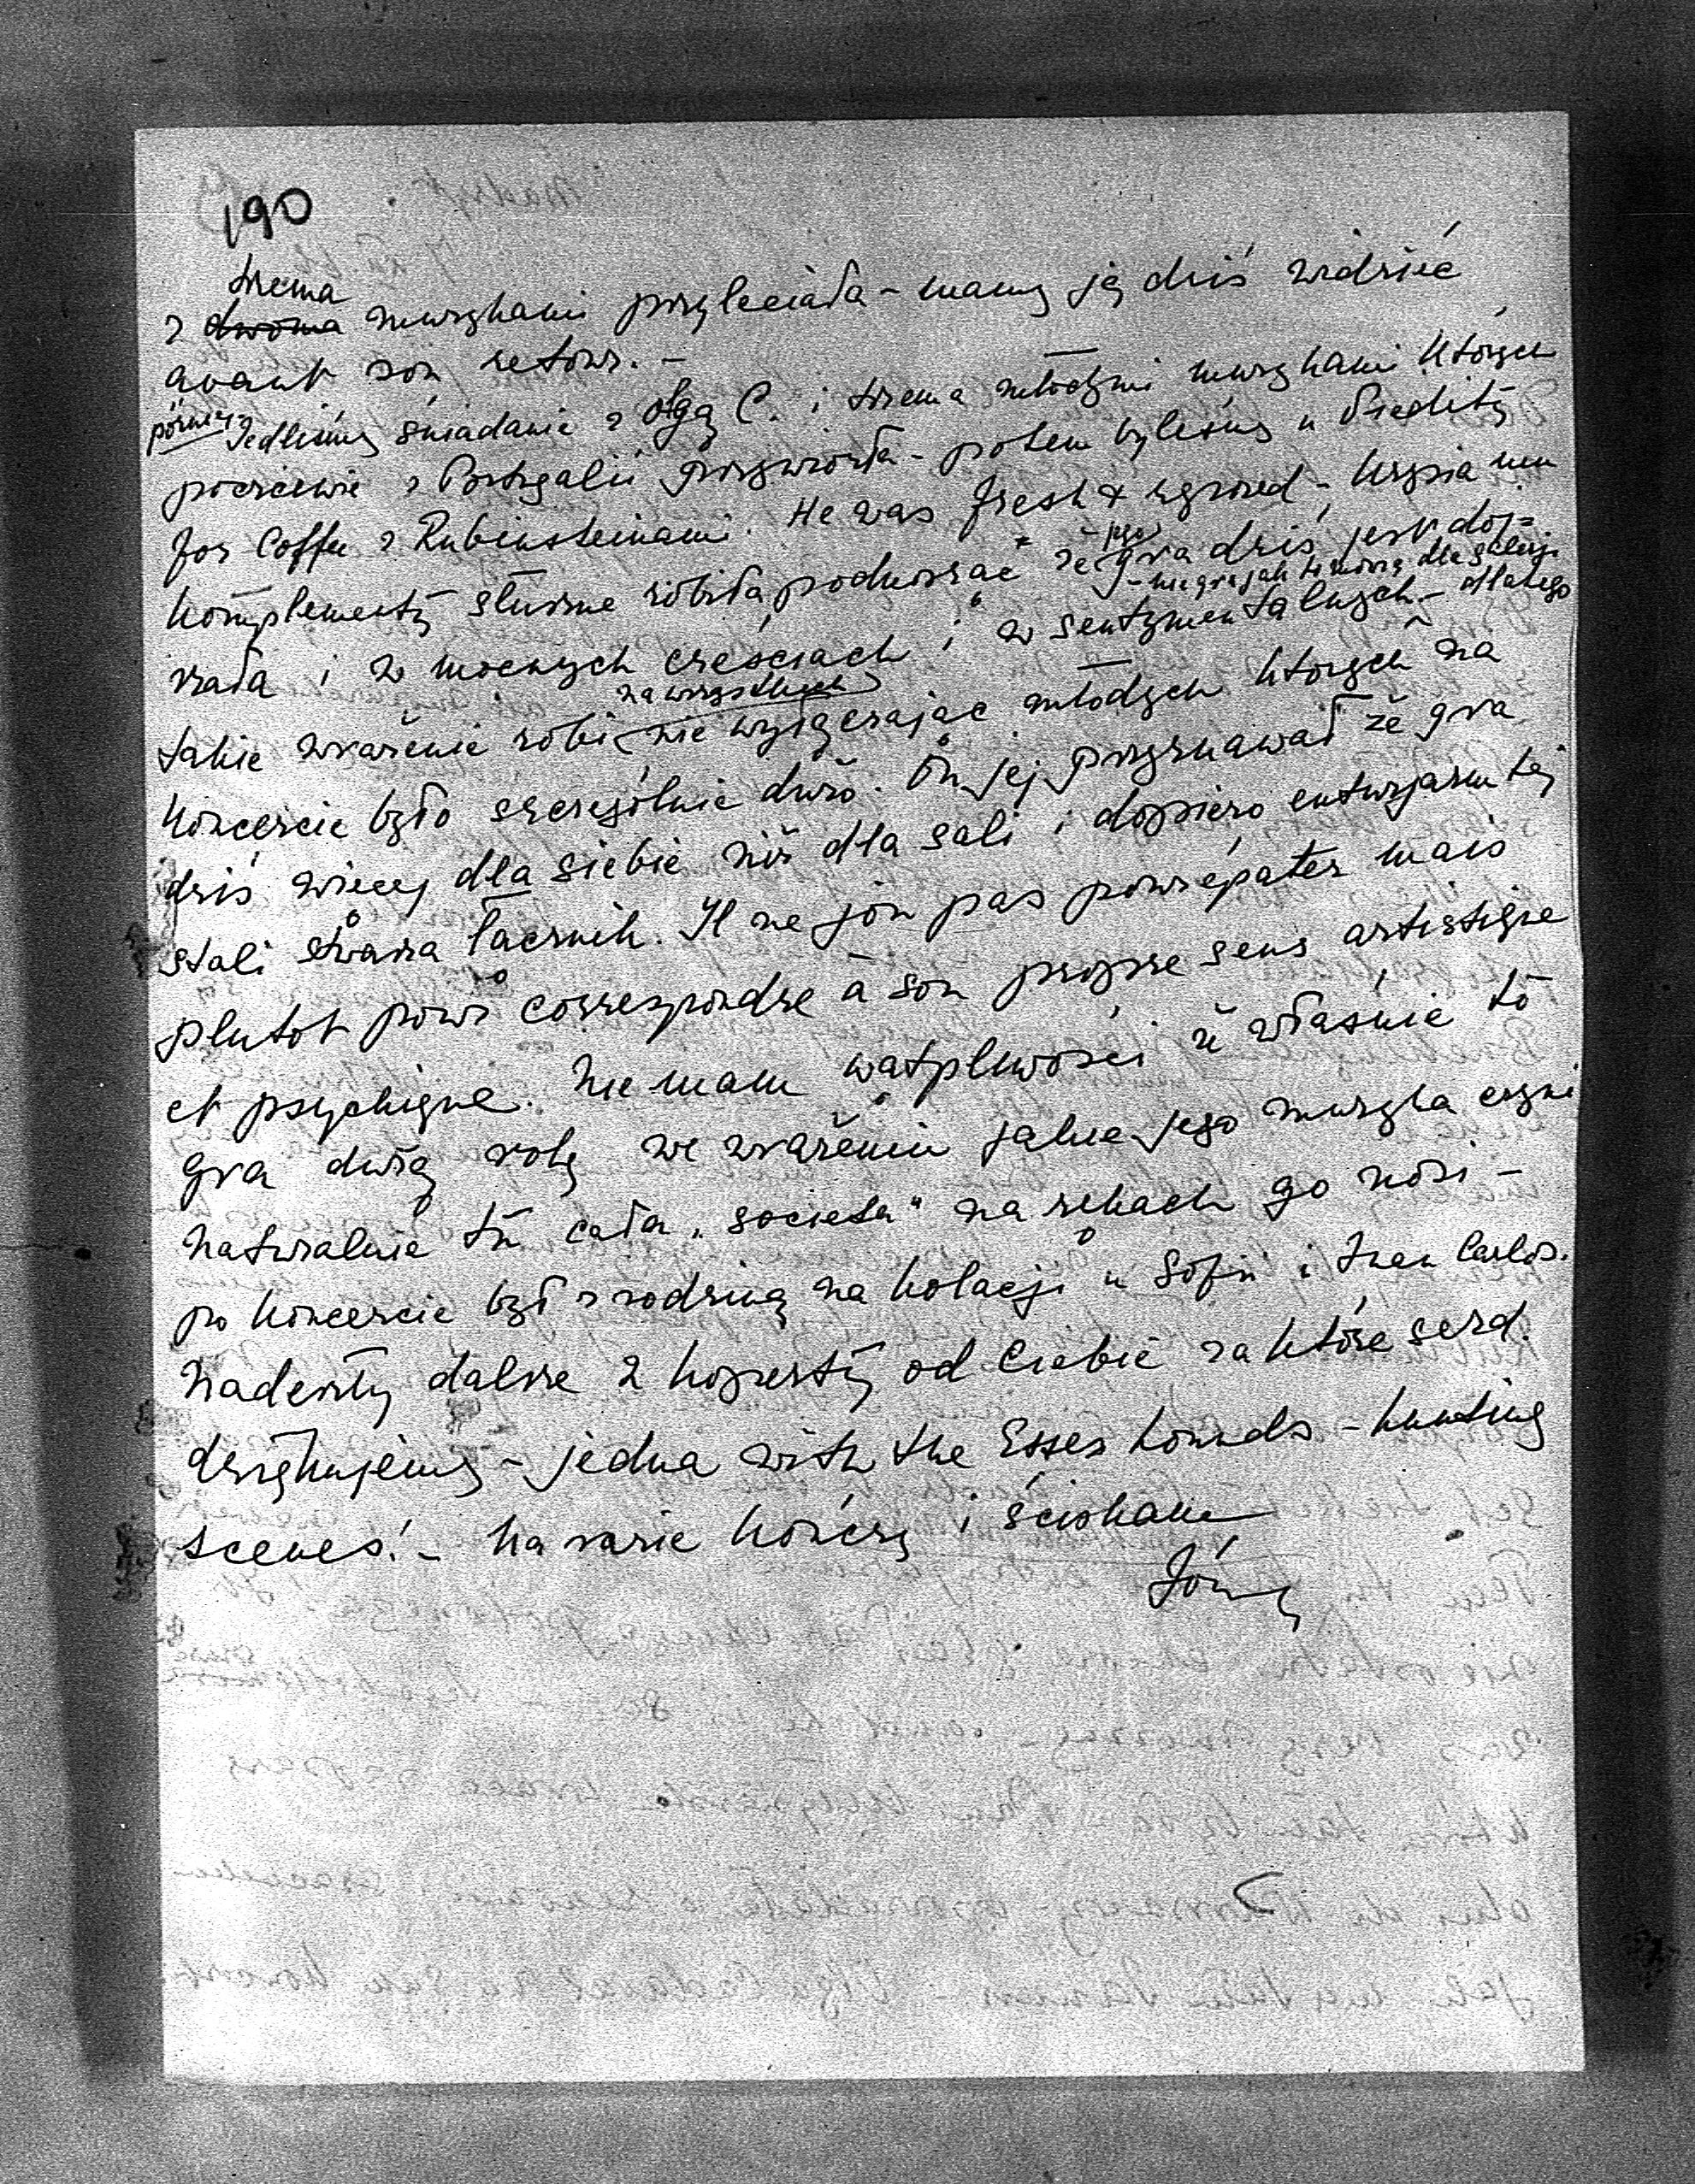 190
trzema
z dwoma muzykami przyleciała – mamy ją dziś widzieć
avant son retour. –
później
Jedliśmy śniadanie z Olgą C. i trzema młodymi muzykami których
poczciwie z Portugalii przywiozła – potem byliśmy u
for coffee z Rubinsteinami. He was fresh & – Krysia mu
jego
komplementy słuszne robiła, podnosząc że gra dziś jest doj=
– nie gra jak to mówią dla galerji
rzała i w mocnych cześciach i w sentymentalnych – dlatego
na wszystkich
takie wrażenie robi nie wyłączając młodych których na
koncercie było szczególnie dużo. On jej przyznawał że gra
dziś więcej dla siebie niż dla sali i dopiero entuzjazm tej
stali stwarza łącznik. Il ne jou pas pour épater mais
plutot pour correspondre à son propre sens artistique
et psychique. Nie mam wątpliwości że właśnie to
gra dużą rolę we wrażeniu jakie jego muzyka czyni
naturalnie tu cała „societa" na rękach go nosi –
po koncercie był z rodziną na kolacji u Sofii i Juan Carlos.
Nadeszły dalsze 2 koperty od Ciebie za które serd.
dziękujemy – jedna with the Essex hounds – hunting
scenes! – Na razie kończę i ściskam
Józ